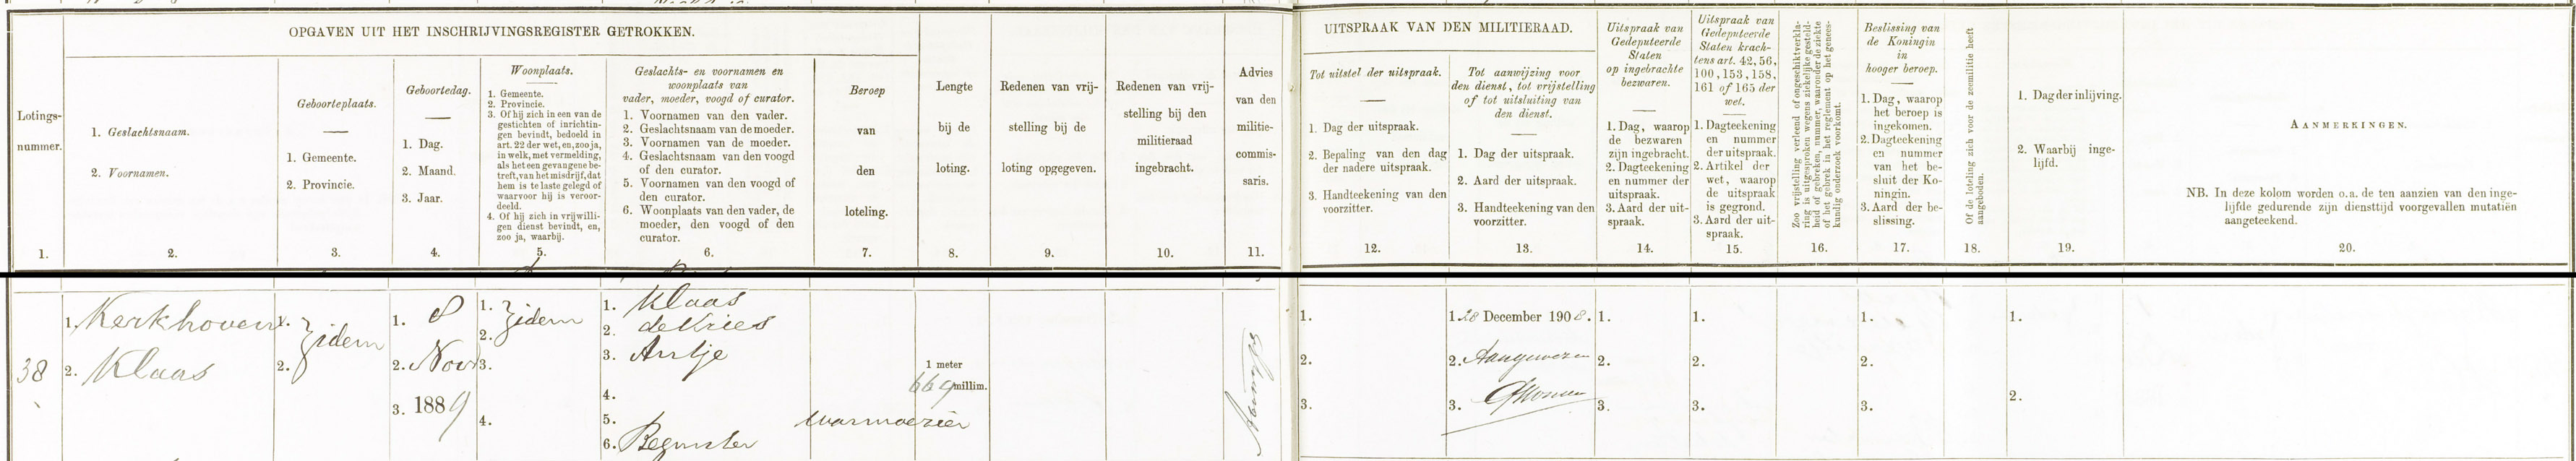 OPGAVEN UIT HET INSCHRIJVINGSREGISTER GETROKKEN.
Lotings-
nummer.
1.
1. Geslachtsnaam.
2. Voornamen.
2.
Geboorteplaats.
1. Gemeente.
2. Provincie.
3.
Geboortedag.
1. Dag.
2. Maand.
3. Jaar.
4.
Woonplaats.
1. Gemeente.
2. Provincie.
3. Of hij zich in een van de
gestichten of inrichtin-
gen bevindt, bedoeld in
art. 22 der wet, en, zoo ja,
in welk, met vermelding,
als het een gevangene be-
treft, van het misdrijf, dat
hem is te laste gelegd of
waarvoor hij is veroor-
deeld.
4. Of hij zich in vrijwilli-
gen dienst bevindt, en,
zoo ja, waarbij.
5.
Geslachts- en voornamen en
woonplaats van
vader, moeder, voogd of curator.
1. Voornamen van den vader.
2. Geslachtsnaam van de moeder.
3. Voornamen van de moeder.
4. Geslachtsnaam van den voogd
of den curator.
5. Voornamen van den voogd of
den curator.
6. Woonplaats van den vader, de
moeder, den voogd of den
curator.
6.
Beroep
van
den
loteling.
7.
Lengte
bij de
loting.
8.
Redenen van vrij-
stelling bij de
loting opgegeven.
9.
Redenen van vrij-
stelling bij den
militieraad
ingebracht.
10.
Advies
van den
militie-
commis-
saris.
11.
UITSPRAAK VAN DEN MILITIERAAD.
Tot uitstel der uitspraak.
1. Dag der uitspraak.
2. Bepaling van den dag
der nadere uitspraak.
3. Handteekening van den
voorzitter.
12.
Tot aanwijzing voor
den dienst, tot vrijstelling
of tot uitsluiting van
den dienst.
1. Dag der uitspraak.
2. Aard der uitspraak.
3. Handteekening van den
voorzitter.
13.
Uitspraak van
Gedeputeerde
Staten
op ingebrachte
bezwaren.
1. Dag, waarop
de bezwaren
zijn ingebracht.
2. Dagteekening
en nummer der
uitspraak.
3. Aard der uit-
spraak.
14.
Uitspraak van
Gedeputeerde
Staten krach-
tens art. 42, 56,
100, 153, 158,
161 of 165 der
wet.
1. Dagteekening
en nummer
der uitspraak.
2. Artikel der
wet, waarop
de uitspraak
is gegrond.
3. Aard der uit-
spraak.
15.
Zoo vrijstelling verleend of ongeschiktverkla-
ring is uitgesproken wegens ziekelijke gesteld-
heid of gebreken, nummer, waaronder de ziekte
of het gebrek in het reglement op het genees-
kundig onderzoek voorkomt.
16.
Beslissing van
de Koningin
in
hooger beroep.
1. Dag, waarop
het beroep is
ingekomen.
2. Dagteekening
en nummer
van het be-
sluit der Ko-
ningin.
3. Aard der be-
slissing.
17.
Of de loteling zich voor de zeemilitie heeft
aangeboden.
18.
1. Dag der inlijving.
2. Waarbij inge-
lijfd.
19.
AANMERKINGEN.
NB. In deze kolom worden o.a. de ten aanzien van den inge-
lijfde gedurende zijn diensttijd voorgevallen mutatiën
aangeteekend.
20.
38
1. Kerkhoven
2. Klaas
1.
2.
idem
1. 8
2. Nov
3. 1889
1.
2.
idem
3.
4.
1. Klaas
2. de Vries
3. Antje
4.
5.
6. Beemster
warmoezier
1 meter
669 millim.
1.
2.
3.
1. 28 December 1908.
2. Aangewezen
3.
1.
2.
3.
1.
2.
3.
1.
2.
3.
1.
2.